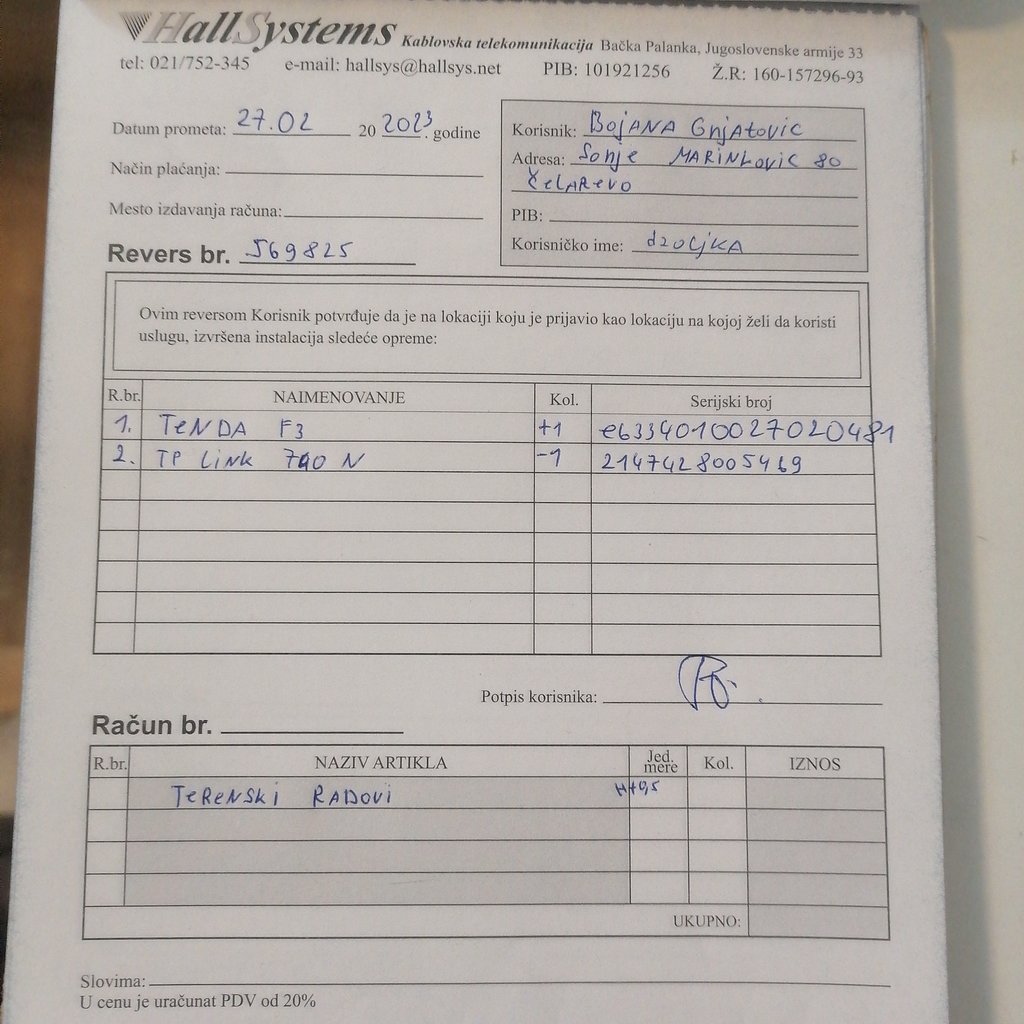 HallSystems Kablovska telekomunikacija Bačka Palanka, Jugoslovenske armije 33
tel: 021/752-345 e-mail: hallsys@hallsys.net PIB: 101921256 Ž.R: 160-157296-93
Datum prometa: 27.02 20 2023. godine
Način plaćanja:
Mesto izdavanja računa:
Revers br. 569825
Korisnik: BojANA GnjAtovic
Adresa: Sonje MARINkovic 80
ČelARevo
PIB:
Korisničko ime: dzoljkA
Ovim reversom Korisnik potvrđuje da je na lokaciji koju je prijavio kao lokaciju na kojoj želi da koristi
uslugu, izvršena instalacija sledeće opreme:
R.br. NAIMENOVANJE Kol. Serijski broj
1. TeNDA F3 +1 e6334010027020481
2. TP Link 740 N -1 2147428005469
Potpis korisnika:
Račun br.
R.br. NAZIV ARTIKLA Jed. mere Kol. IZNOS
TeReNSki RADovi
UKUPNO:
Slovima:
U cenu je uračunat PDV od 20%